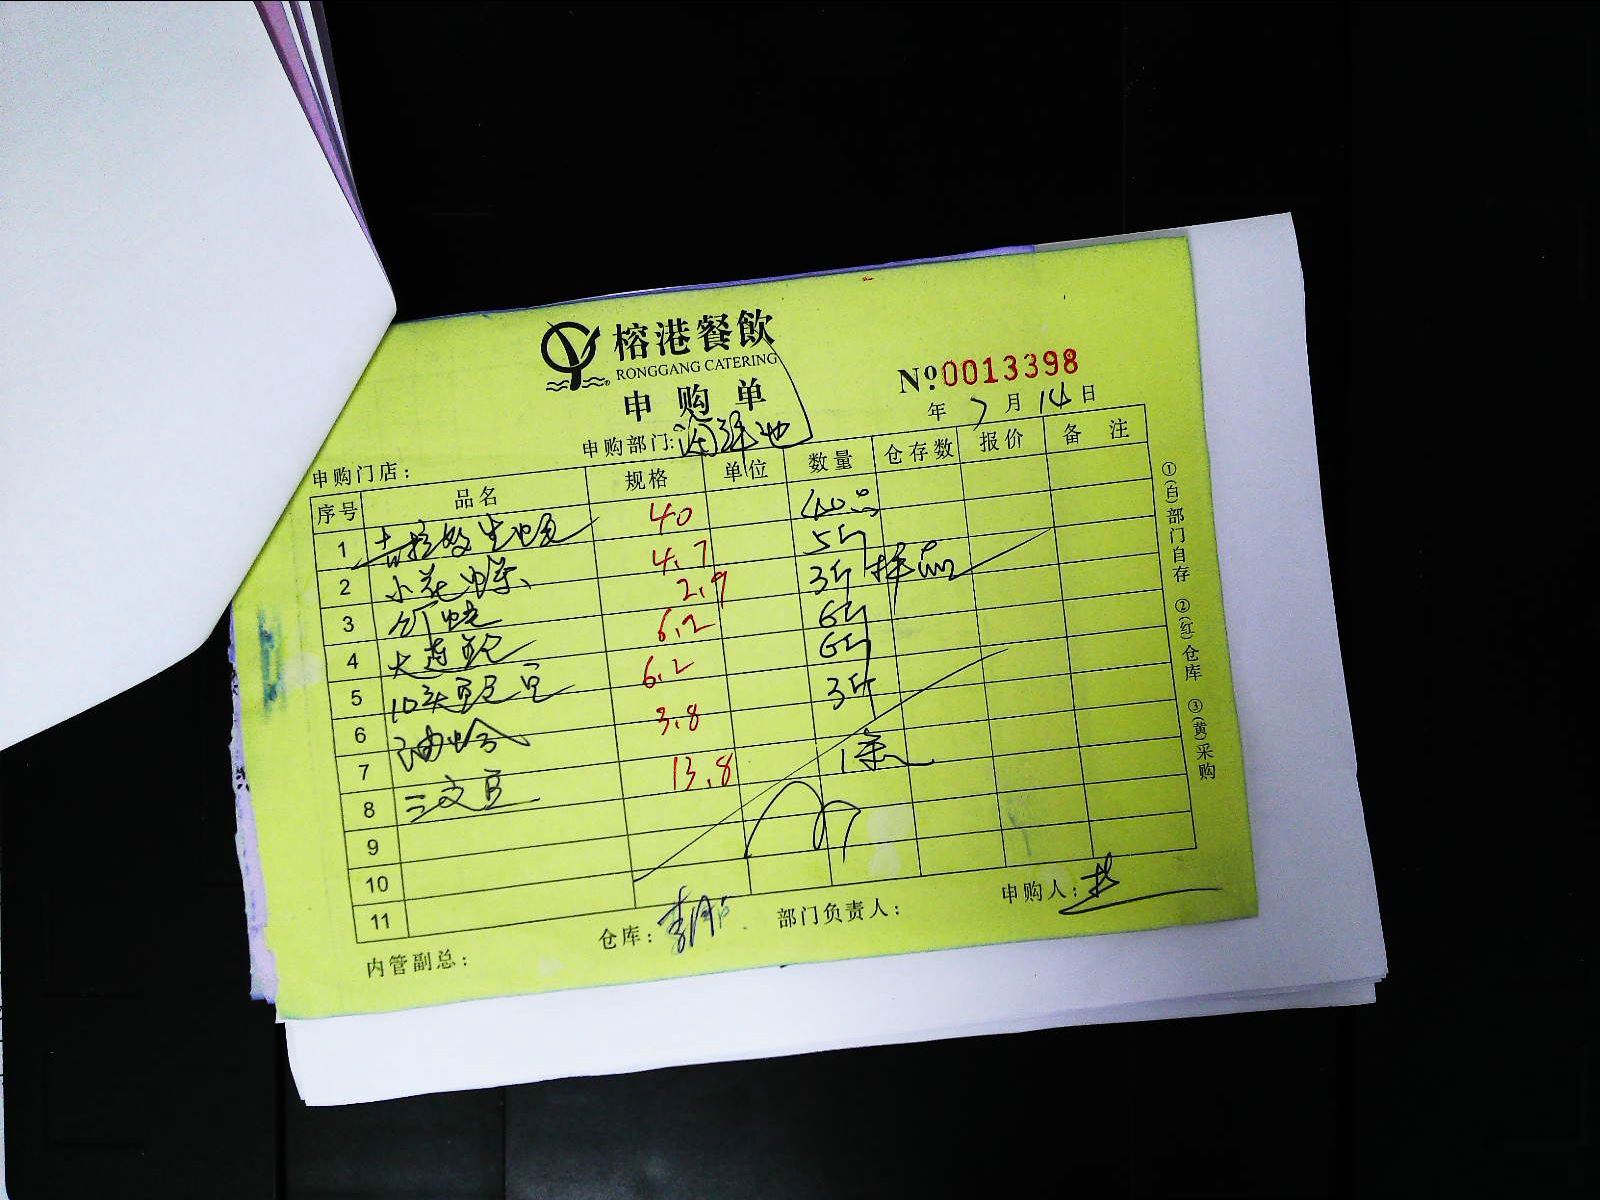 榕港餐飲
RONGGANG CATERING
申购单
№ 0013398
年 7 月 14 日
申购部门: 海鲜池
申购门店:
序号 品名 规格 单位 数量 仓存数 报价 备注
1 吉拉多生蚝 40 40只
2 小花 4.7 5斤
3 2.9 3斤 样品
4 大连鲍 6.2 6斤
5 10头鲍 6.2 6斤
6 油蛤 3.8 3斤
7
8 三文 13.8 1条
9
10
11
内管副总: 仓库: 部门负责人: 申购人:
①(白)部门自存 ②(红)仓库 ③(黄)采购